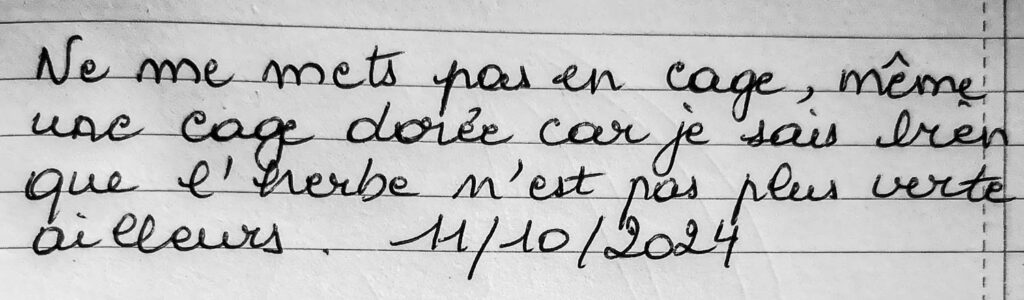 Ne me mets pas en cage, même
une cage dorée car je sais bien
que l'herbe n'est pas plus verte
ailleurs. 11/10/2024